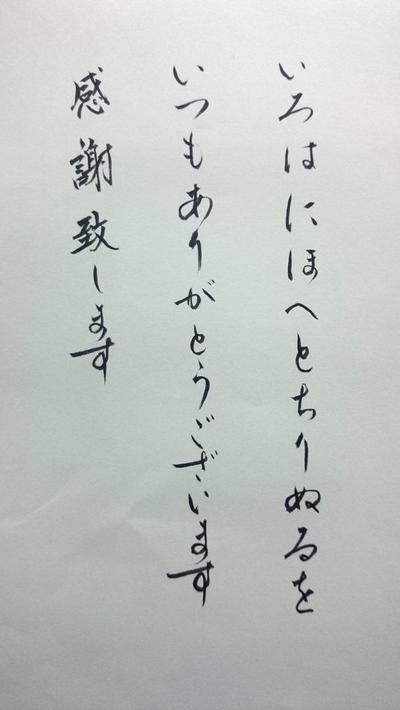 いろはにほへとちりぬるを
いつもありがとうございます
感謝致します